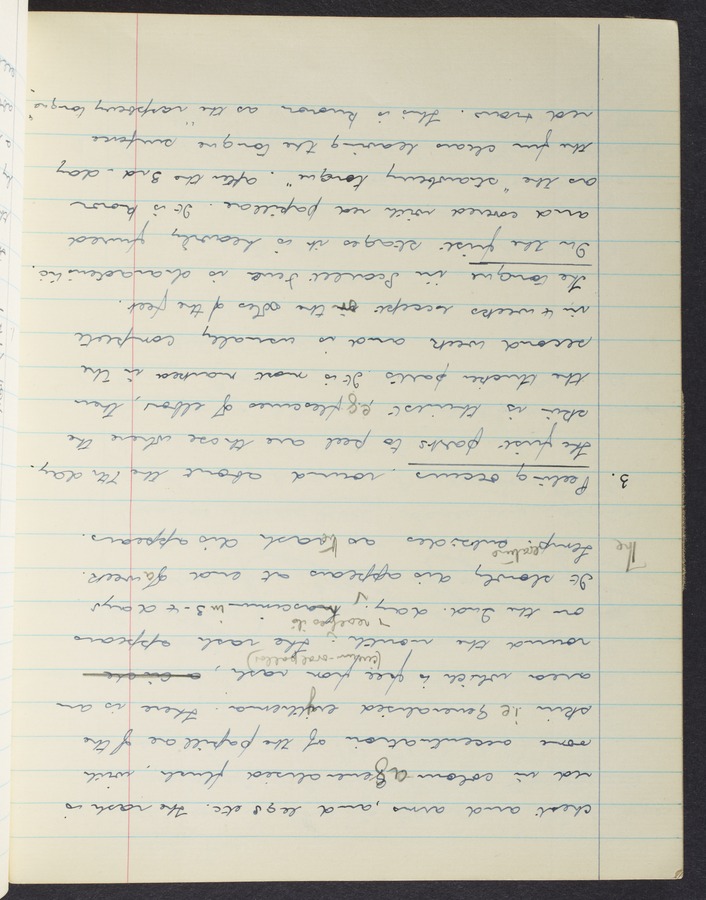 chest and arms, and legs etc. The rash is
red in colour a generalised flush, with
some accentuation of the papillae of the
skin i.e generalised erythema. There is an
area which is free from rash, a circle
(circum-oral pallor)
round the mouth; the rash appears
reaches its
on the 2nd. day. maximum in 3-4 days
It slowly disappears at end of a week.
The temperature subsides as rash disappears.
3. Peeling occurs round about the 7th day.
the first parts to peel are those where the
skin is thinnest e.g flexures of elbow, then
the thicker parts. It is most marked in the
second week and is usually complete
in 4 weeks except on the soles of the feet.
The tongue in Scarlet Fever is characteristic.
In the first stages it is heavily furred
and covered with red papillae. It is known
as the "strawberry tongue". After the 3rd-day
the fur clears leaving the tongue surface
red & raw. This is known as the "raspberry tongue".